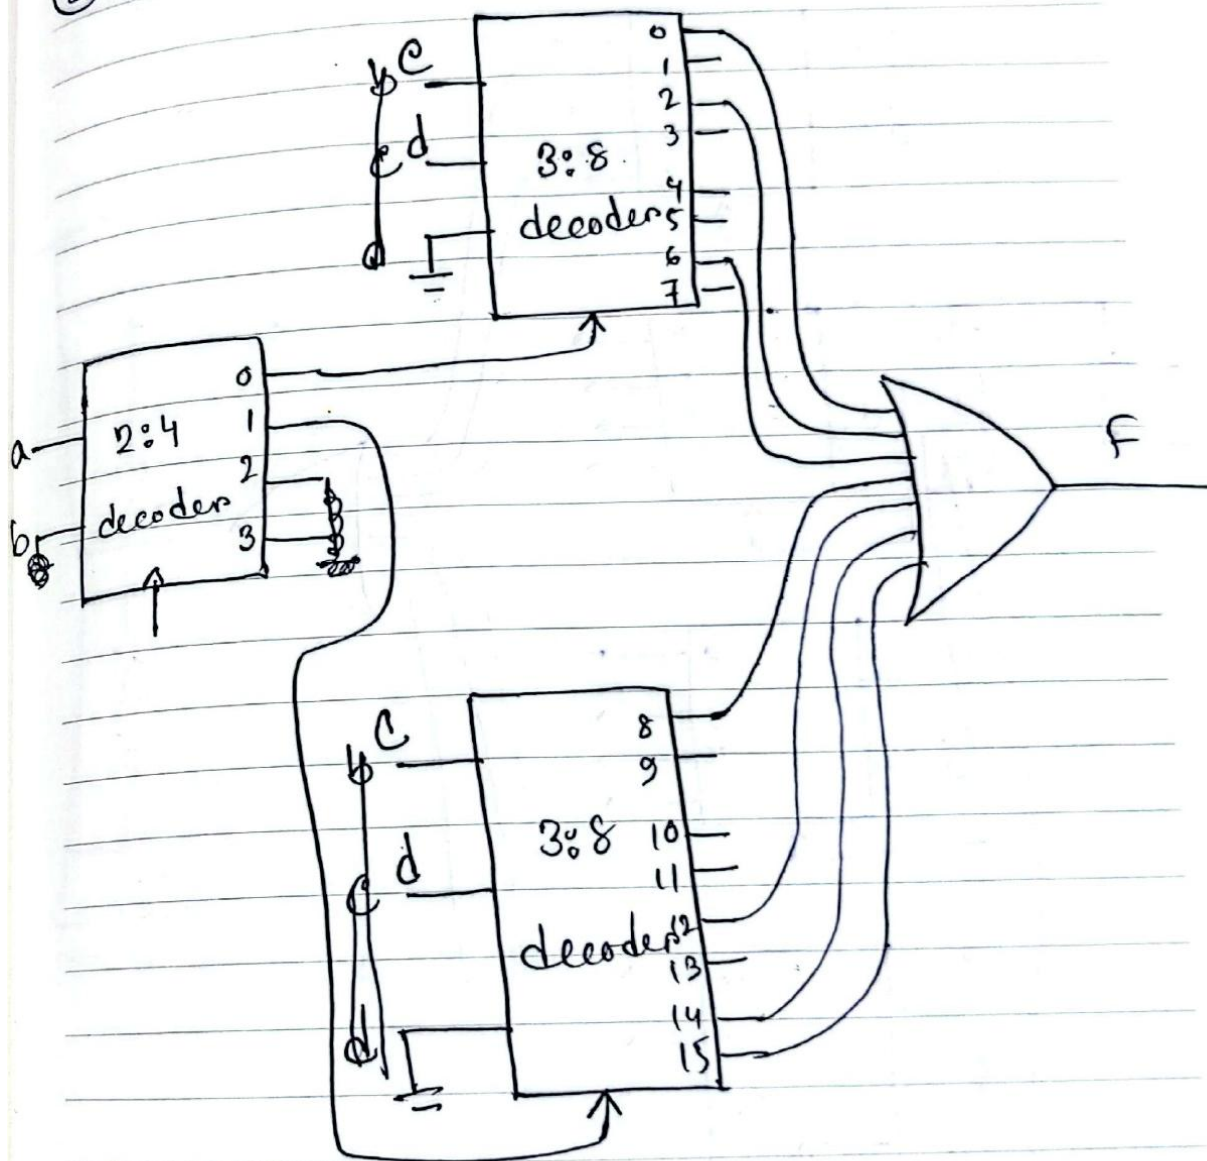 c
d
3:8
decoder
0
1
2
3
4
5
6
7
a
b
2:4
decoder
0
1
2
3
F
c
d
3:8
decoder
8
9
10
11
12
13
14
15